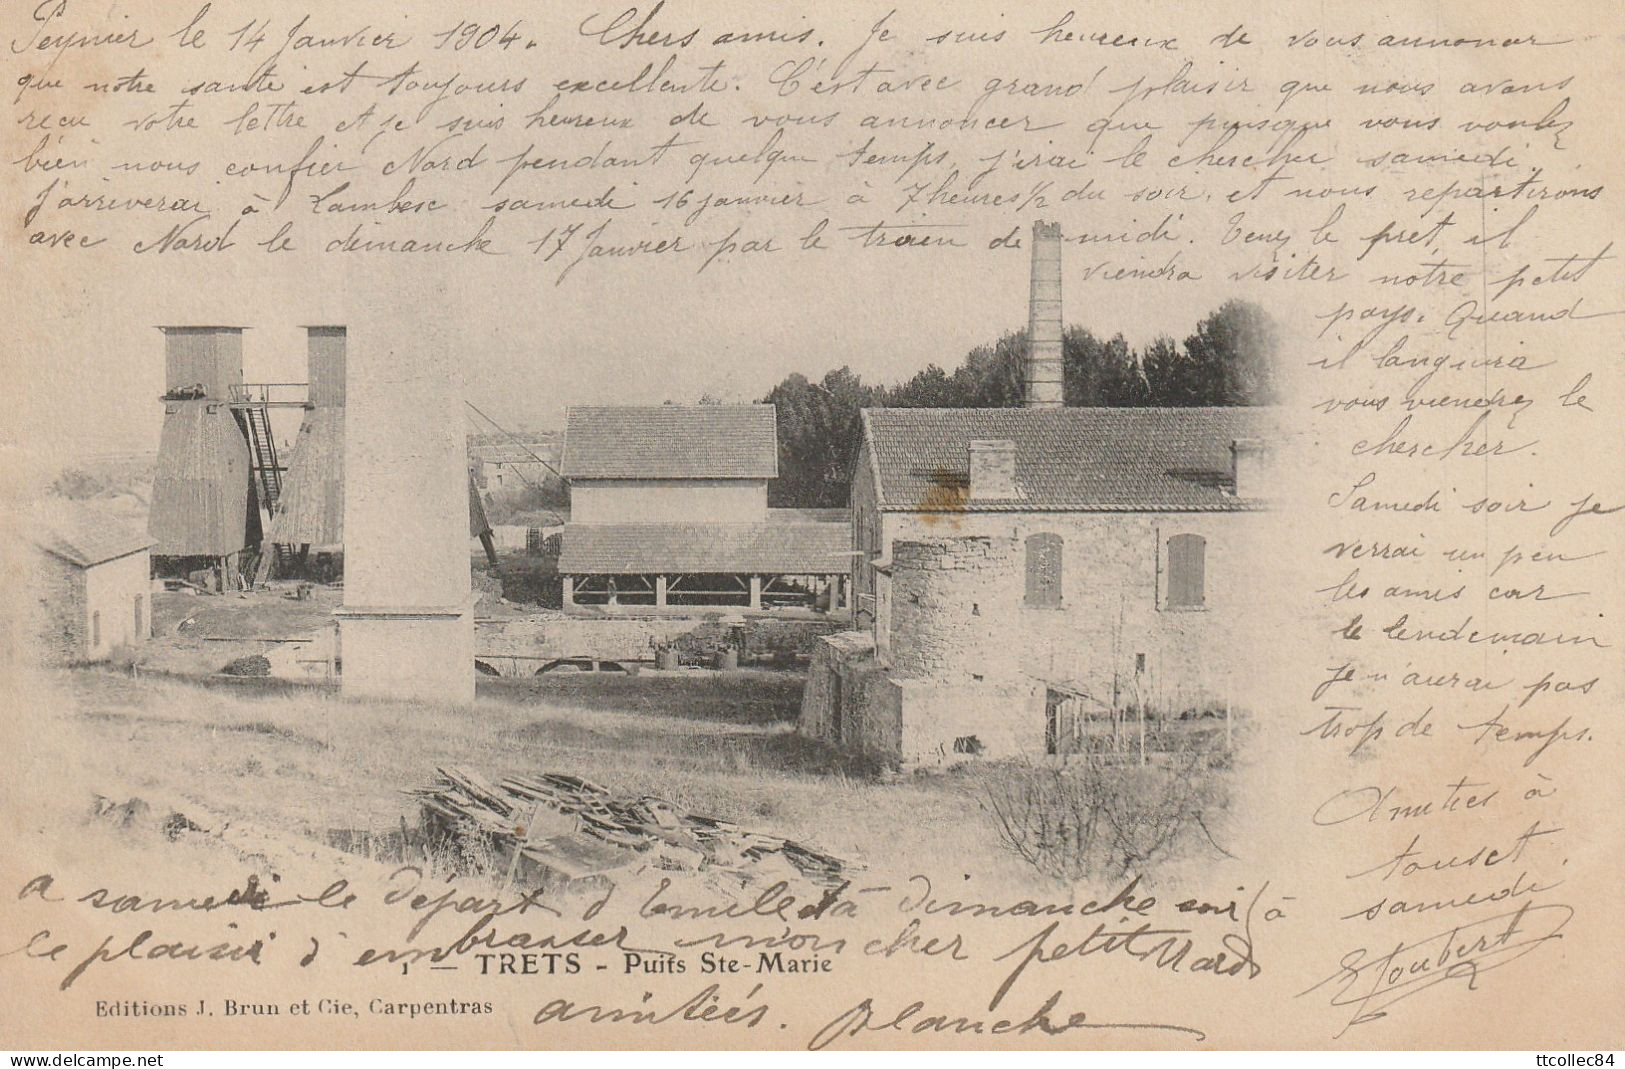 Peynier le 14 Janvier 1904. Chers amis. Je suis heureux de vous annoncer
que notre santé est toujours excellente. C'est avec grand plaisir que nous avons
reçu votre lettre et je suis heureux de vous annoncer que puisque vous voulez
bien nous confier Nard pendant quelque temps, j'irai le chercher samedi.
J'arriverai à Lambesc samedi 16 janvier à 7 heures 1/2 du soir, et nous repartirons
avec Nard le dimanche 17 Janvier par le train de midi. Tenez le prêt, il
viendra visiter notre petit
pays. Quand
il languira
vous viendrez le
chercher.
Samedi soir je
verrai un peu
les amis car
le lendemain
je n'aurai pas
trop de temps.
Amitiés à
tous et
samedi
EJoubert
A samedi le départ d'Emile et à dimanche soir à
le plaisir d'embrasser mon cher petit Nard
1 - TRETS - Puits Ste-Marie
Editions J. Brun et Cie, Carpentras
amitiés. Blanche
ttcollec84